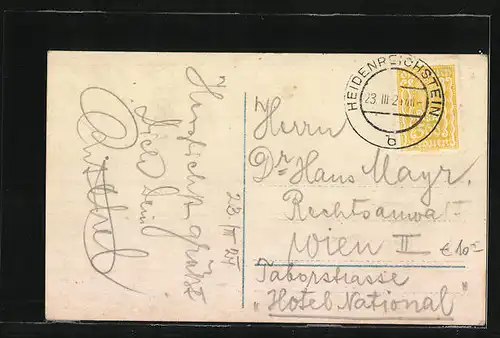 Herzlichst grüßt
Dich Dein
23/III 24
HEIDENREICHSTEIN
23. III. 24
b
Herrn
Dr Hans Mayr.
Rechtsanwalt
Wien II
€ 10,-
Taborstrasse
„Hotel National"